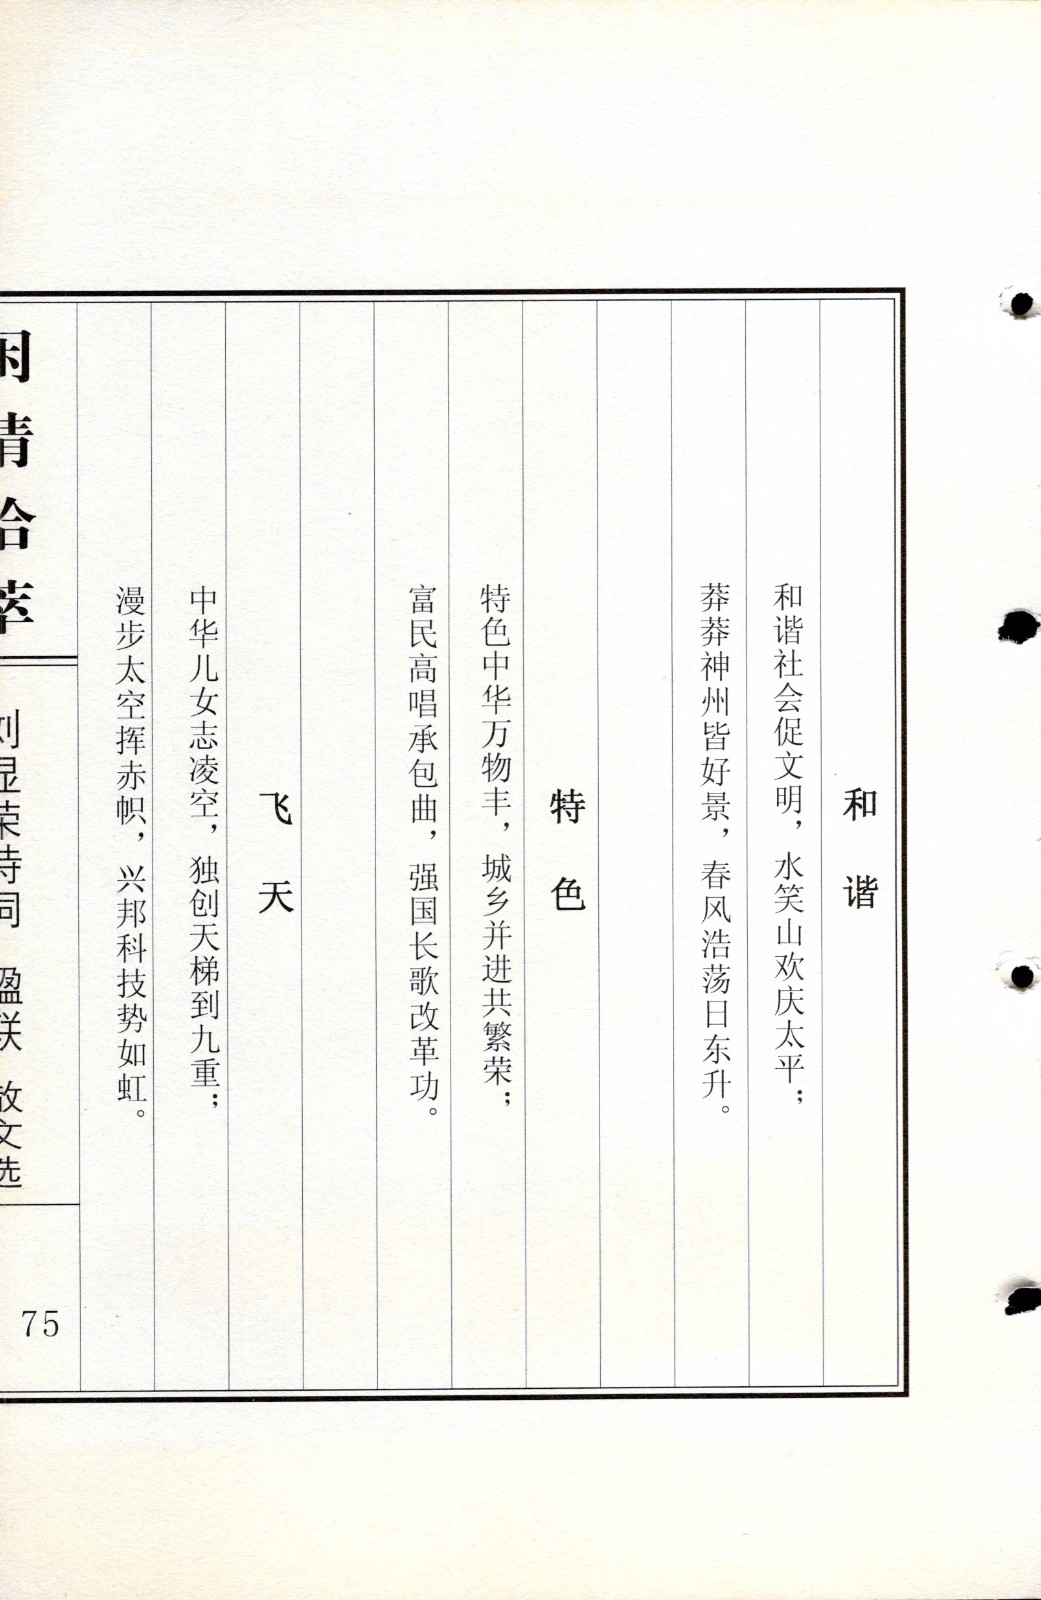 和谐
和谐社会促文明，水笑山欢庆太平；
莽莽神州皆好景，春风浩荡日东升。
特色
特色中华万物丰，城乡并进共繁荣；
富民高唱承包曲，强国长歌改革功。
飞天
中华儿女志凌空，独创天梯到九重；
漫步太空挥赤帜，兴邦科技势如虹。
闲情拾萃
刘显荣诗词 楹联 散文选
75